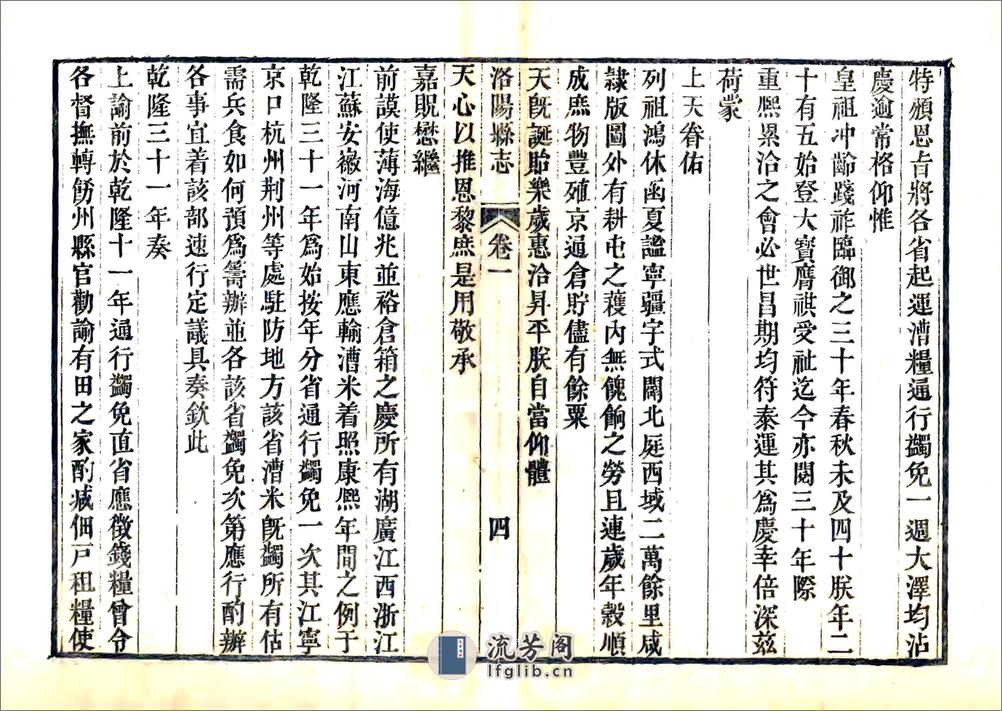 特頒恩旨將各省起運漕糧通行蠲免一週大澤均沾
慶逾常格仰惟
皇祖冲齡踐祚臨御之三十年春秋未及四十朕年二
十有五始登大寶膺祺受祉迄今亦閱三十年際
重熙累洽之會必世昌期均符泰運其為慶幸倍深茲
荷蒙
上天眷佑
列祖鴻休函夏謐寧疆宇式闢北庭西域二萬餘里咸
隸版圖外有耕屯之穫內無餽餉之勞且連歲年穀順
成庶物豐殖京通倉貯儘有餘粟
天旣誕貽樂歲惠洽昇平朕自當仰體
洛陽縣志 卷一 四
天心以推恩黎庶是用敬承
嘉貺懋繼
前謨使薄海億兆並裕倉箱之慶所有湖廣江西浙江
江蘇安徽河南山東應輸漕米着照康熙年間之例于
乾隆三十一年爲始按年分省通行蠲免一次其江寧
京口杭州荆州等處駐防地方該省漕米旣蠲所有估
需兵食如何預爲籌辦並各該省蠲免次第應行酌辦
各事宜着該部速行定議具奏欽此
乾隆三十一年奏
上諭前於乾隆十一年通行蠲免直省應徵錢糧曾令
各督撫轉飭州縣官勸諭有田之家酌减佃戶租糧使
流芳阁
lfglib.cn